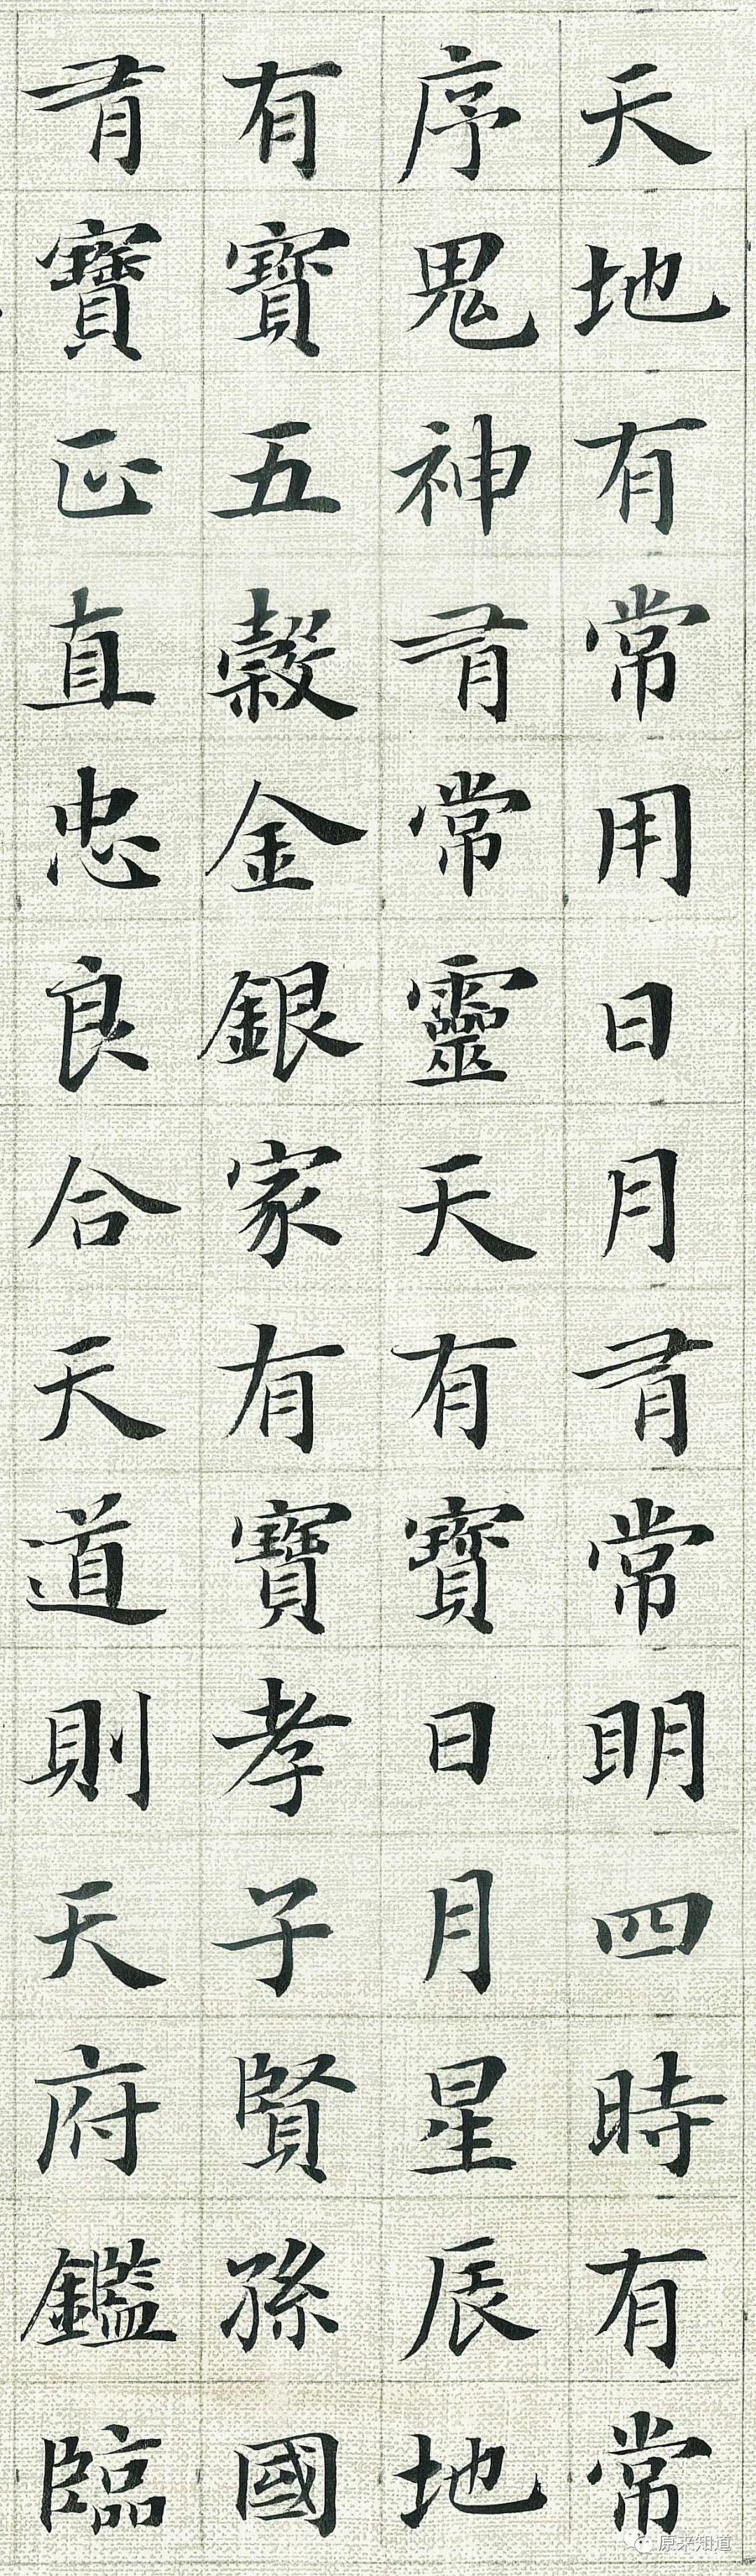 天地有常用日月有常明四時有常
序鬼神有常靈天有寶日月星辰地
有寶五穀金銀家有寶孝子賢孫國
有寶正直忠良合天道則天府鑑臨
原来知道